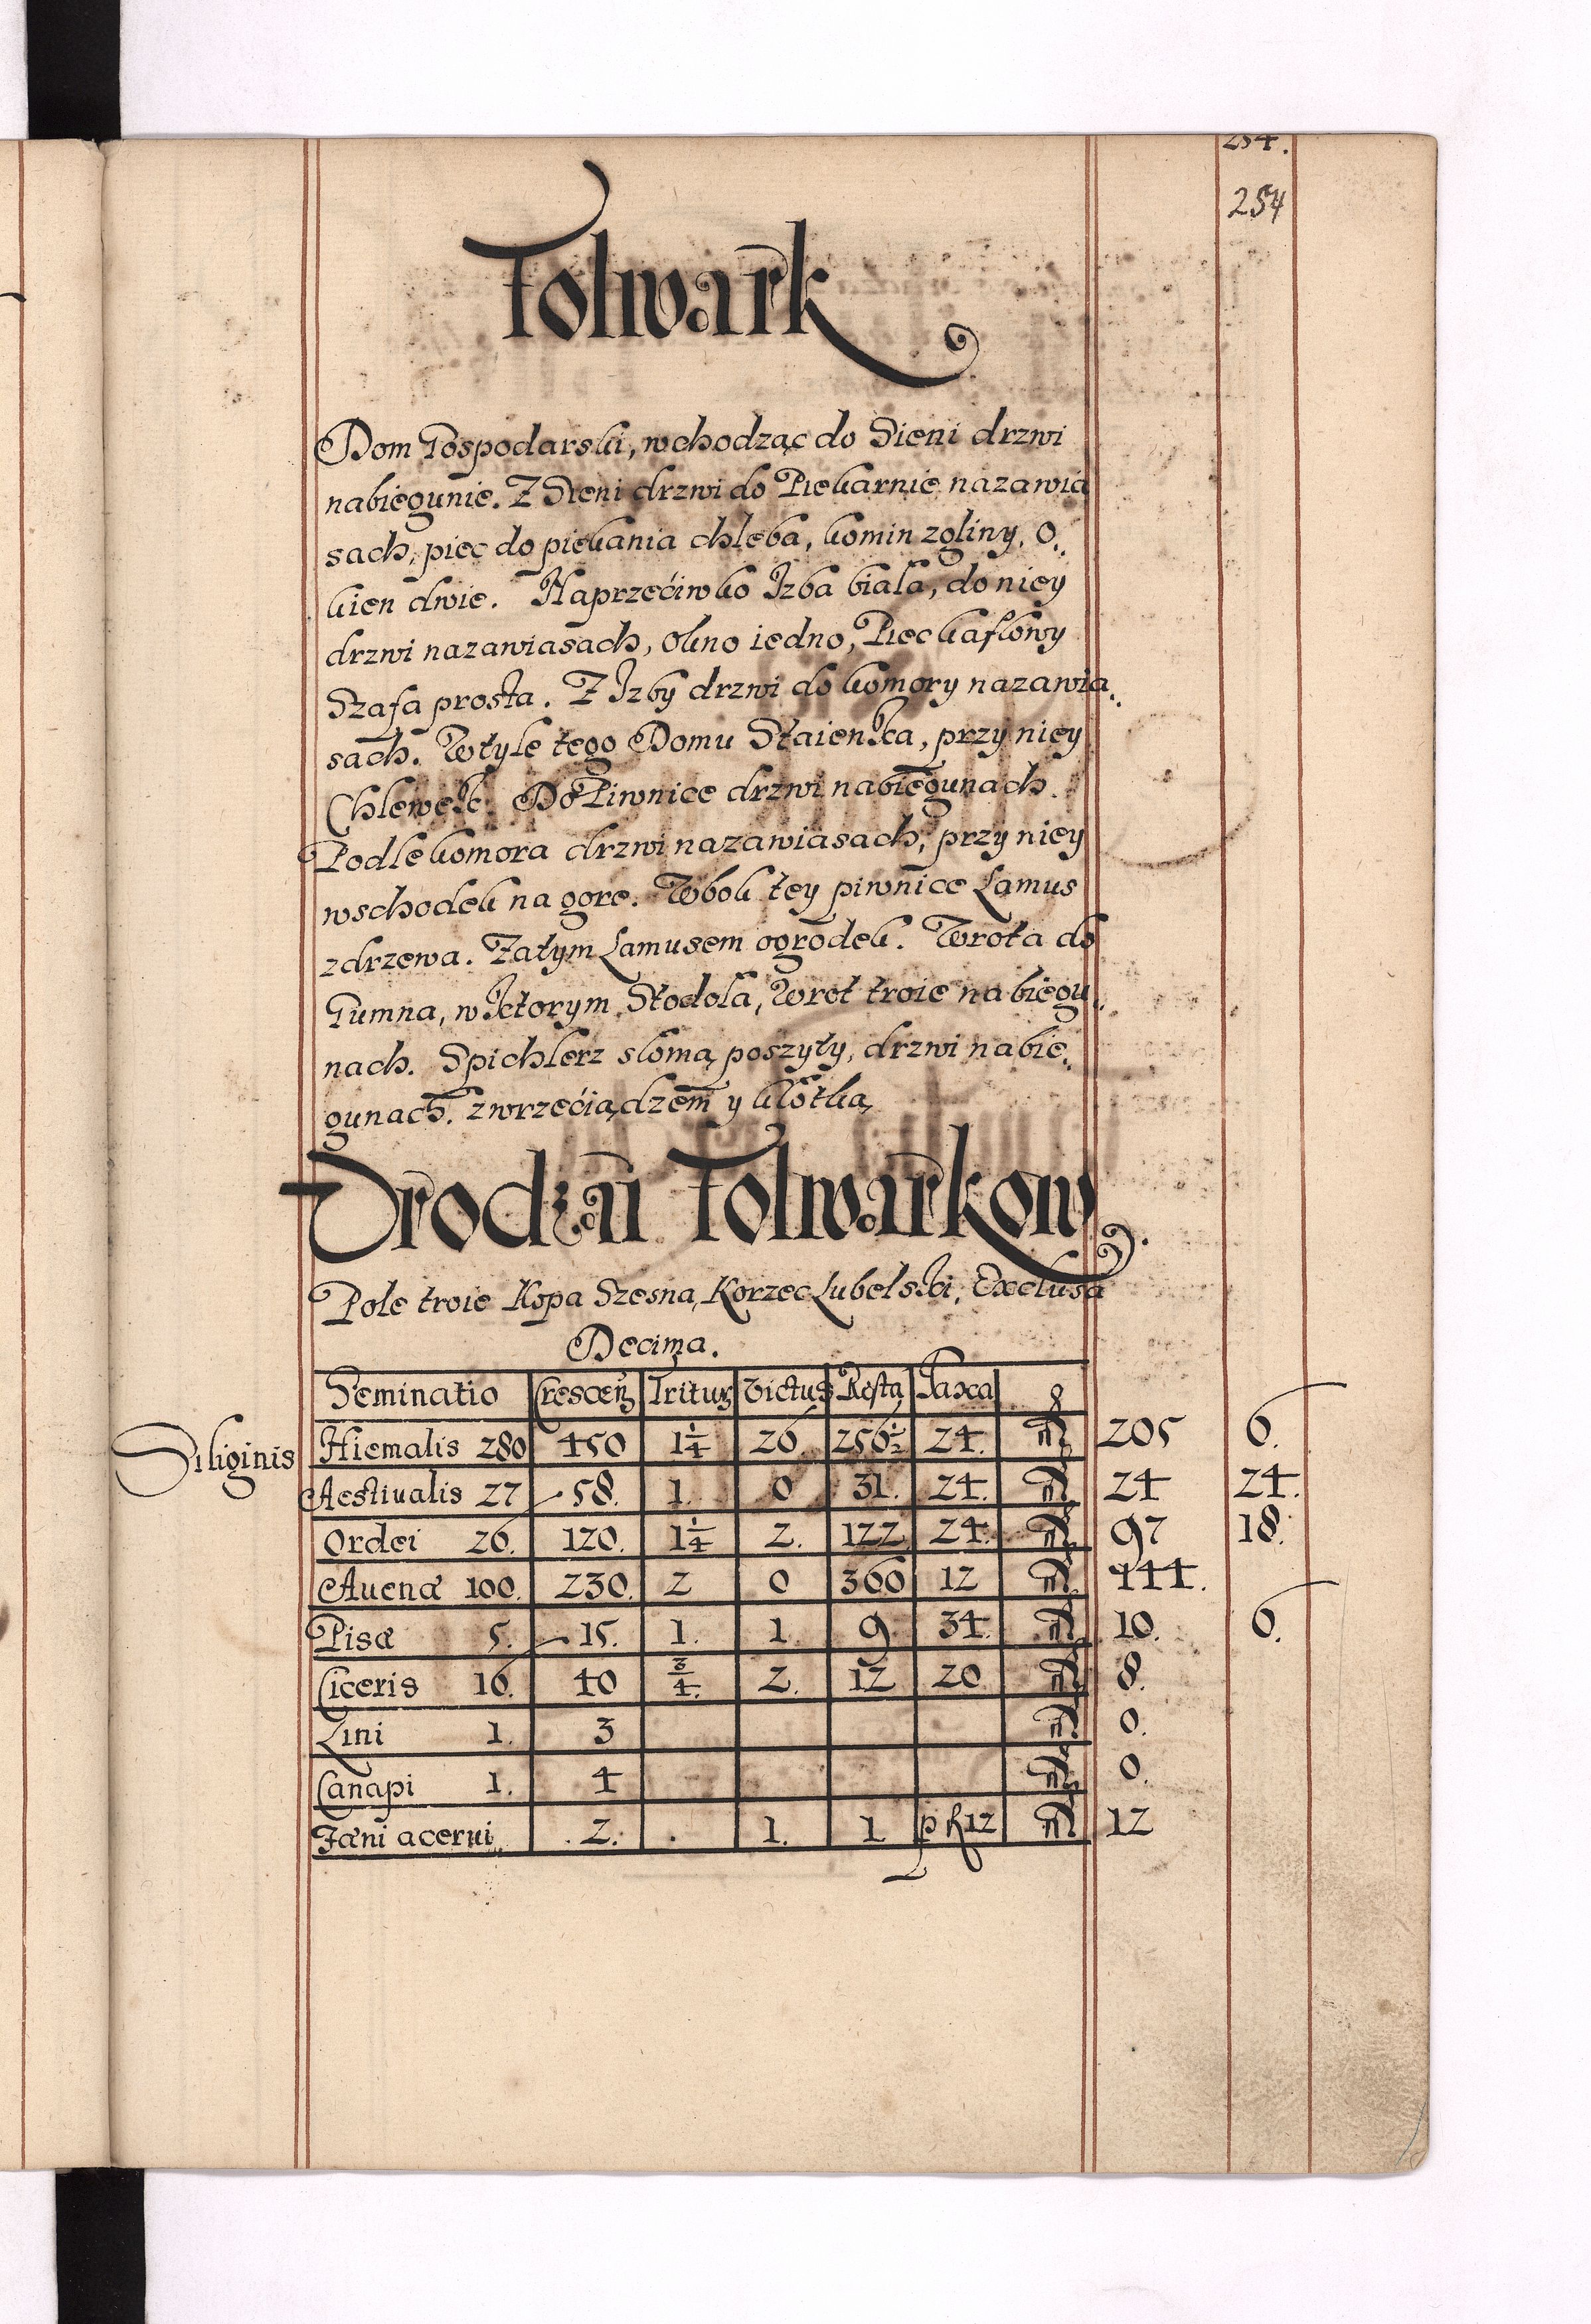 254.
254
Folwark
Dom Gospodarski, wchodząc do Sieni drzwi
nabiegunie. Z Sieni drzwi do Piekarnie nazawia
sach, piec do piekania chleba, komin zgliny, O„
kien dwie. Naprzećiwko Izba biała, do niey
drzwi nazawiasach, Okno iedno, Piec kaflowy
Szafa prosta. Z Izby drzwi do komory nazawia„
sach. Wtyle tego Domu Staienka, przy niey
Chlewek. Do Piwnice drzwi nabiegunach.
Podle komora drzwi nazawiasach, przy niey
wschodek na gore. Wbok tey piwnice Lamus
zdrzewa. Zatym Lamusem ogrodek. Wrota do
Gumna, wktorym Stodoła, Wrot troie nabiegu„
nach. Spichlerz słomą poszyty, drzwi nabie„
gunach. zwrzećiądzem y kłotką
Vrodzai Folwarkow.
Pole troie Kopa Szesna, Korzec Lubelski, Exclusa
Decima.
Seminatio Crescen Tritur Victus Resta Taxa
Siliginis Hiemalis 280 450 1¼ 26 256½ 24. 205 6.
Aestiualis 27 58. 1. 0 31. 24. 24 24.
Ordei 26. 120. 1¼ 2. 122 24. 97 18.
Auenæ 100. 230. 2 0 360 12 144.
Pisæ 5. 15. 1. 1 9 34. 10. 6.
Ciceris 16. 40 ¾. 2. 12 20 8.
Lini 1. 3 0.
Canapi 1. 4 0.
Fæni acerui 2. . 1. 1 p f 12 12